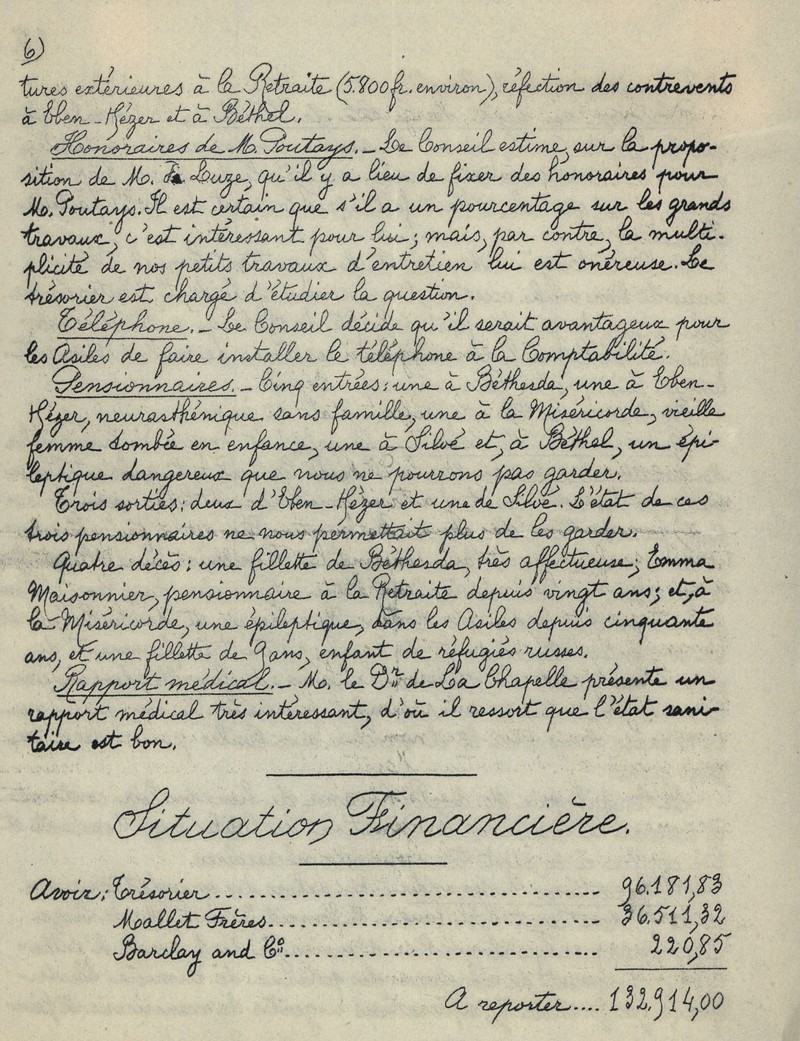 6)
tures extérieures à la Retraite (5.800 fr. environ), réfection des contrevents
à Eben-Hézer et à Béthel.
Honoraires de M. Poutays. - Le Conseil estime, sur la propo-
sition de M. Luze, qu'il y a lieu de fixer des honoraires pour
M. Poutays. Il est certain que s'il a un pourcentage sur les grands
travaux, c'est intéressant pour lui; mais, par contre, la multi-
plicité de nos petits travaux d'entretien lui est onéreuse. Le
trésorier est chargé d'étudier la question.
Téléphone. - Le Conseil décide qu'il serait avantageux pour
les Asiles de faire installer le téléphone à la Comptabilité.
Pensionnaires. - Cinq entrées: une à Béthesda, une à Eben-
Hézer, neurasthénique sans famille, une à la Miséricorde, vieille
femme tombée en enfance, une à Siloé et, à Béthel, un épi-
leptique dangereux que nous ne pourrons pas garder.
Trois sorties: deux d'Eben-Hézer et une de Siloé. L'état de ces
trois pensionnaires ne nous permettait plus de les garder.
Quatre décès: une fillette de Béthesda, très affectueuse; Emma
Maisonnier, pensionnaire à la Retraite depuis vingt ans; et, à
la Miséricorde, une épileptique, dans les Asiles depuis cinquante
ans, et une fillette de 9 ans, enfant de réfugiés russes.
Rapport médical. - M. le Dr. de La Chapelle présente un
rapport médical très intéressant, d'où il ressort que l'état sani-
taire est bon.
Situation Financière.
Avoir: Trésorier.................... 96.181,83
Mallet Frères.................... 36.511,32
Barclay and Co.................... 220,85
A reporter.... 132.914,00